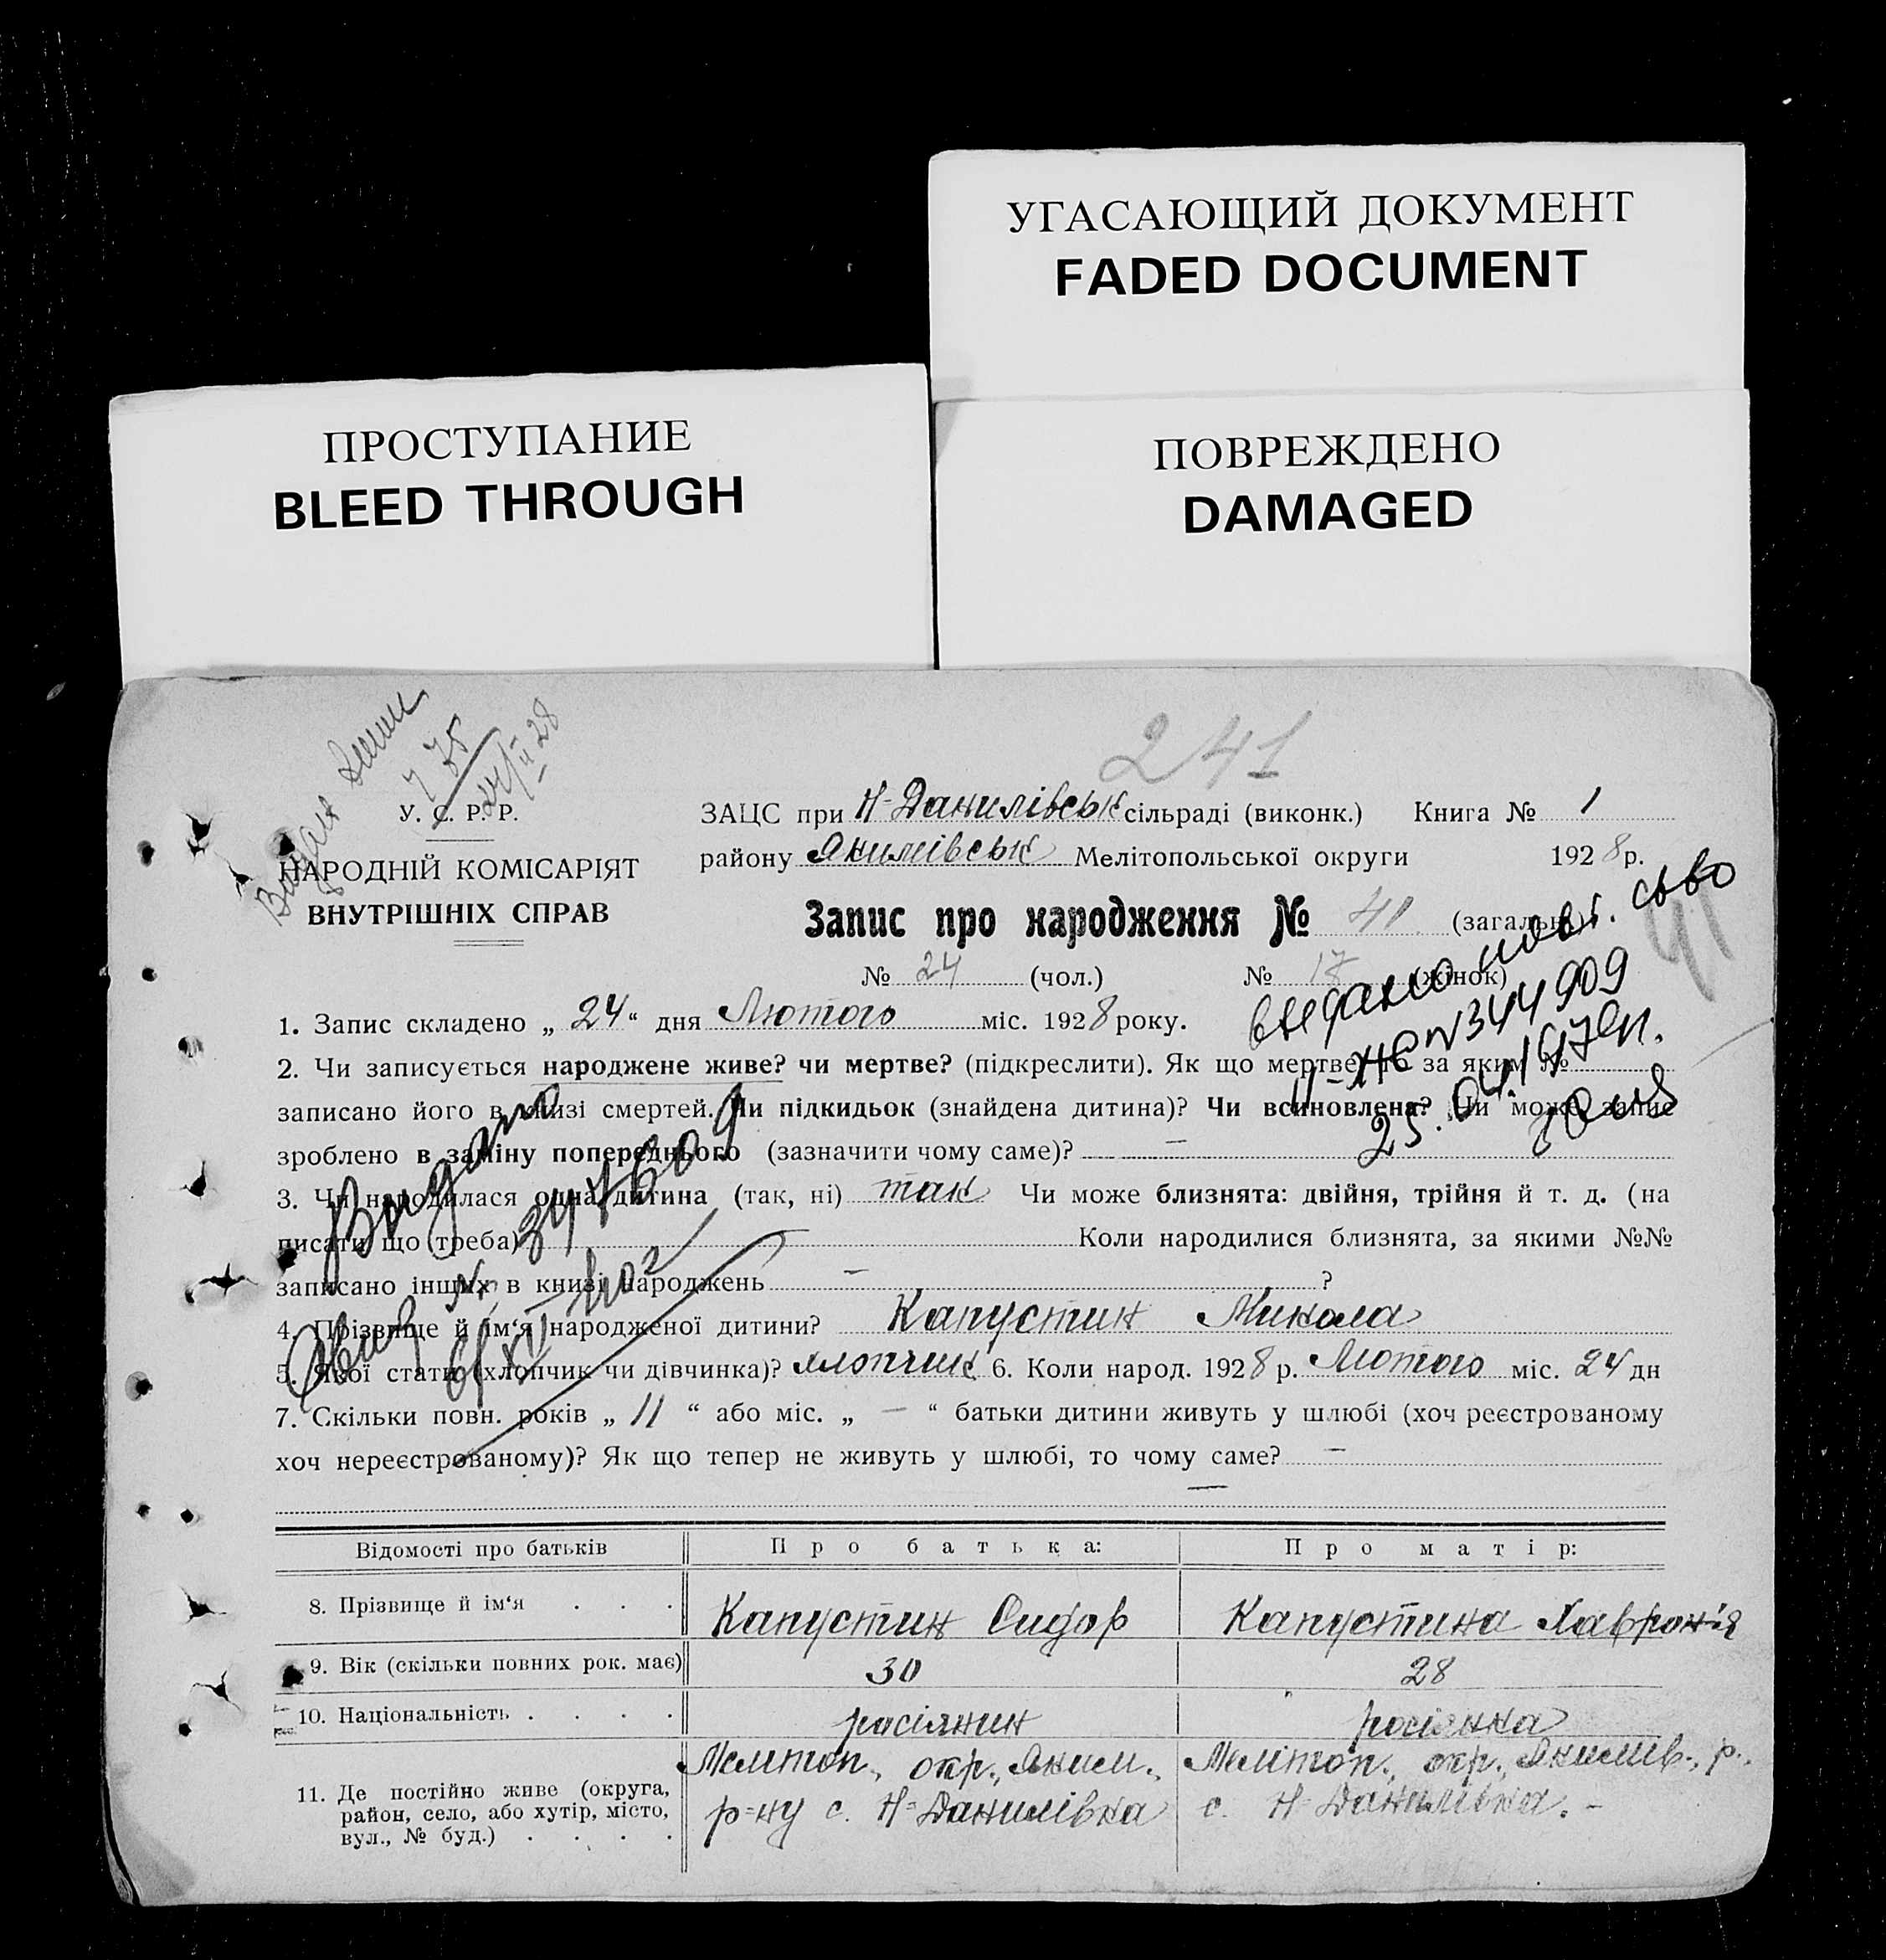 УГАСАЮЩИЙ ДОКУМЕНТ
FADED DOCUMENT
ПРОСТУПАНИЕ
BLEED THROUGH
ПОВРЕЖДЕНО
DAMAGED
241
У. С. Р. Р.
НАРОДНІЙ КОМІСАРІЯТ
ВНУТРІШНІХ СПРАВ
ЗАЦС при Н-Данилівськ сільраді (виконк.) Книга № 1
району Якимівськ Мелітопольської округи 1928 р.
Запис про народження № 41 (загальн.)
41
№ 24 (чол.) № 17 (жінок)
видано повт. св-во
II-ЖС № 344909
25.04.1979п.
Видано
1. Запис складено „ 24 “ дня Лютого міс. 1928 року.
2. Чи записується народжене живе? чи мертве? (підкреслити). Як що мертве, то за яким №
записано його в книзі смертей. Чи підкидьок (знайдена дитина)? Чи всиновлена? Чи може запис
зроблено в заміну попереднього (зазначити чому саме)? —
3. Чи народилася одна дитина (так, ні) так Чи може близнята: двійня, трійня й т. д. (на
писати що треба) Коли народилися близнята, за якими №№
записано інших в книзі народжень — ?
4. Прізвище й ім‘я народженої дитини? Капустин Микола
5. Якої статі (хлопчик чи дівчинка)? хлопчик 6. Коли народ. 1928 р. Лютого міс. 24 дн
7. Скільки повн. років „ 11 “ або міс. „ — “ батьки дитини живуть у шлюбі (хоч реєстрованому
хоч нереєстрованому)? Як що тепер не живуть у шлюбі, то чому саме? —
—
Відомості про батьків Про батька: Про матір:
8. Прізвище й ім‘я . . . Капустин Сидор Капустина Хавронія
9. Вік (скільки повних рок. має) 30 28
10. Національність . . . . росіянин росіянка
11. Де постійно живе (округа, район, село, або хутір, місто, вул., № буд.) . . . .
Мелітоп., окр., Яким., р-ну с. Н-Данилівка
Мелітоп., окр., Якимів., р., с. Н-Данилівка. —